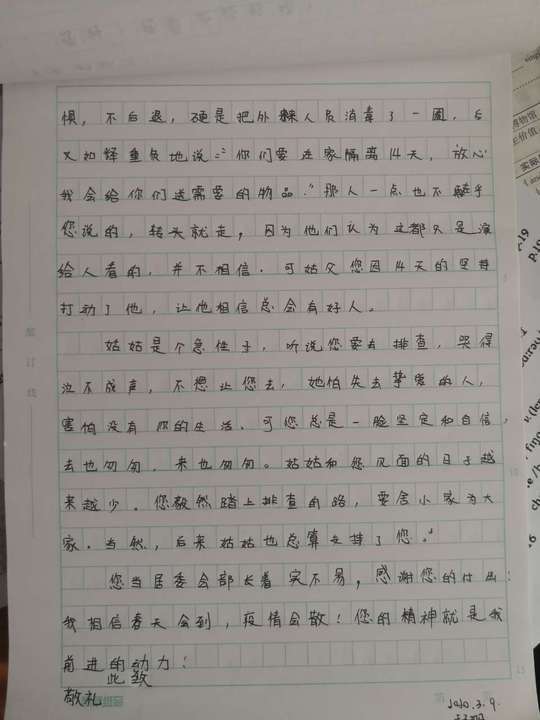 惧，不后退，硬是把外来人员消毒了一圈，后
又如释重负地说：“你们要进家隔离14天，放心
我会给你们送需要的物品。”那人一点也不在乎
您说的，转头就走，因为他们认为这都只是演
给人看的，并不相信。可姑父您因14天的坚持
打动了他，让他相信总会有好人。
姑姑是个急性子，听说您要去排查，哭得
泣不成声，不想让您去，她怕失去挚爱的人，
害怕没有你的生活。可您总是一脸坚定和自信，
去也匆匆，来也匆匆。姑姑和您见面的日子越
来越少。您毅然踏上排查的路，要舍小家为大
家。当然，后来姑姑也总算支持了您。
您当居委会部长着实不易，感谢您的付出！
我相信春天会到，疫情会散！您的精神就是我
前进的动力！
此致
敬礼
2020.3.9.